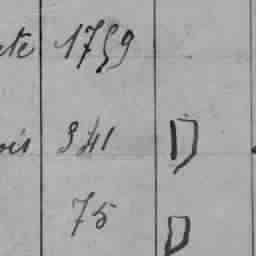 ete 1759
ois 341 D
75 D